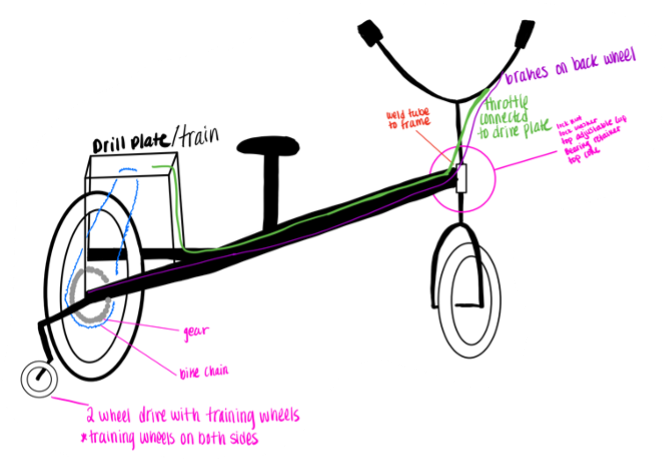 brakes on back wheel
throttle
connected
to drive plate
weld tube
to frame
lock nut
lock washer
top adjustable cup
bearing retainer
top cone
Drill plate/train
gear
bike chain
2 wheel drive with training wheels
*training wheels on both sides